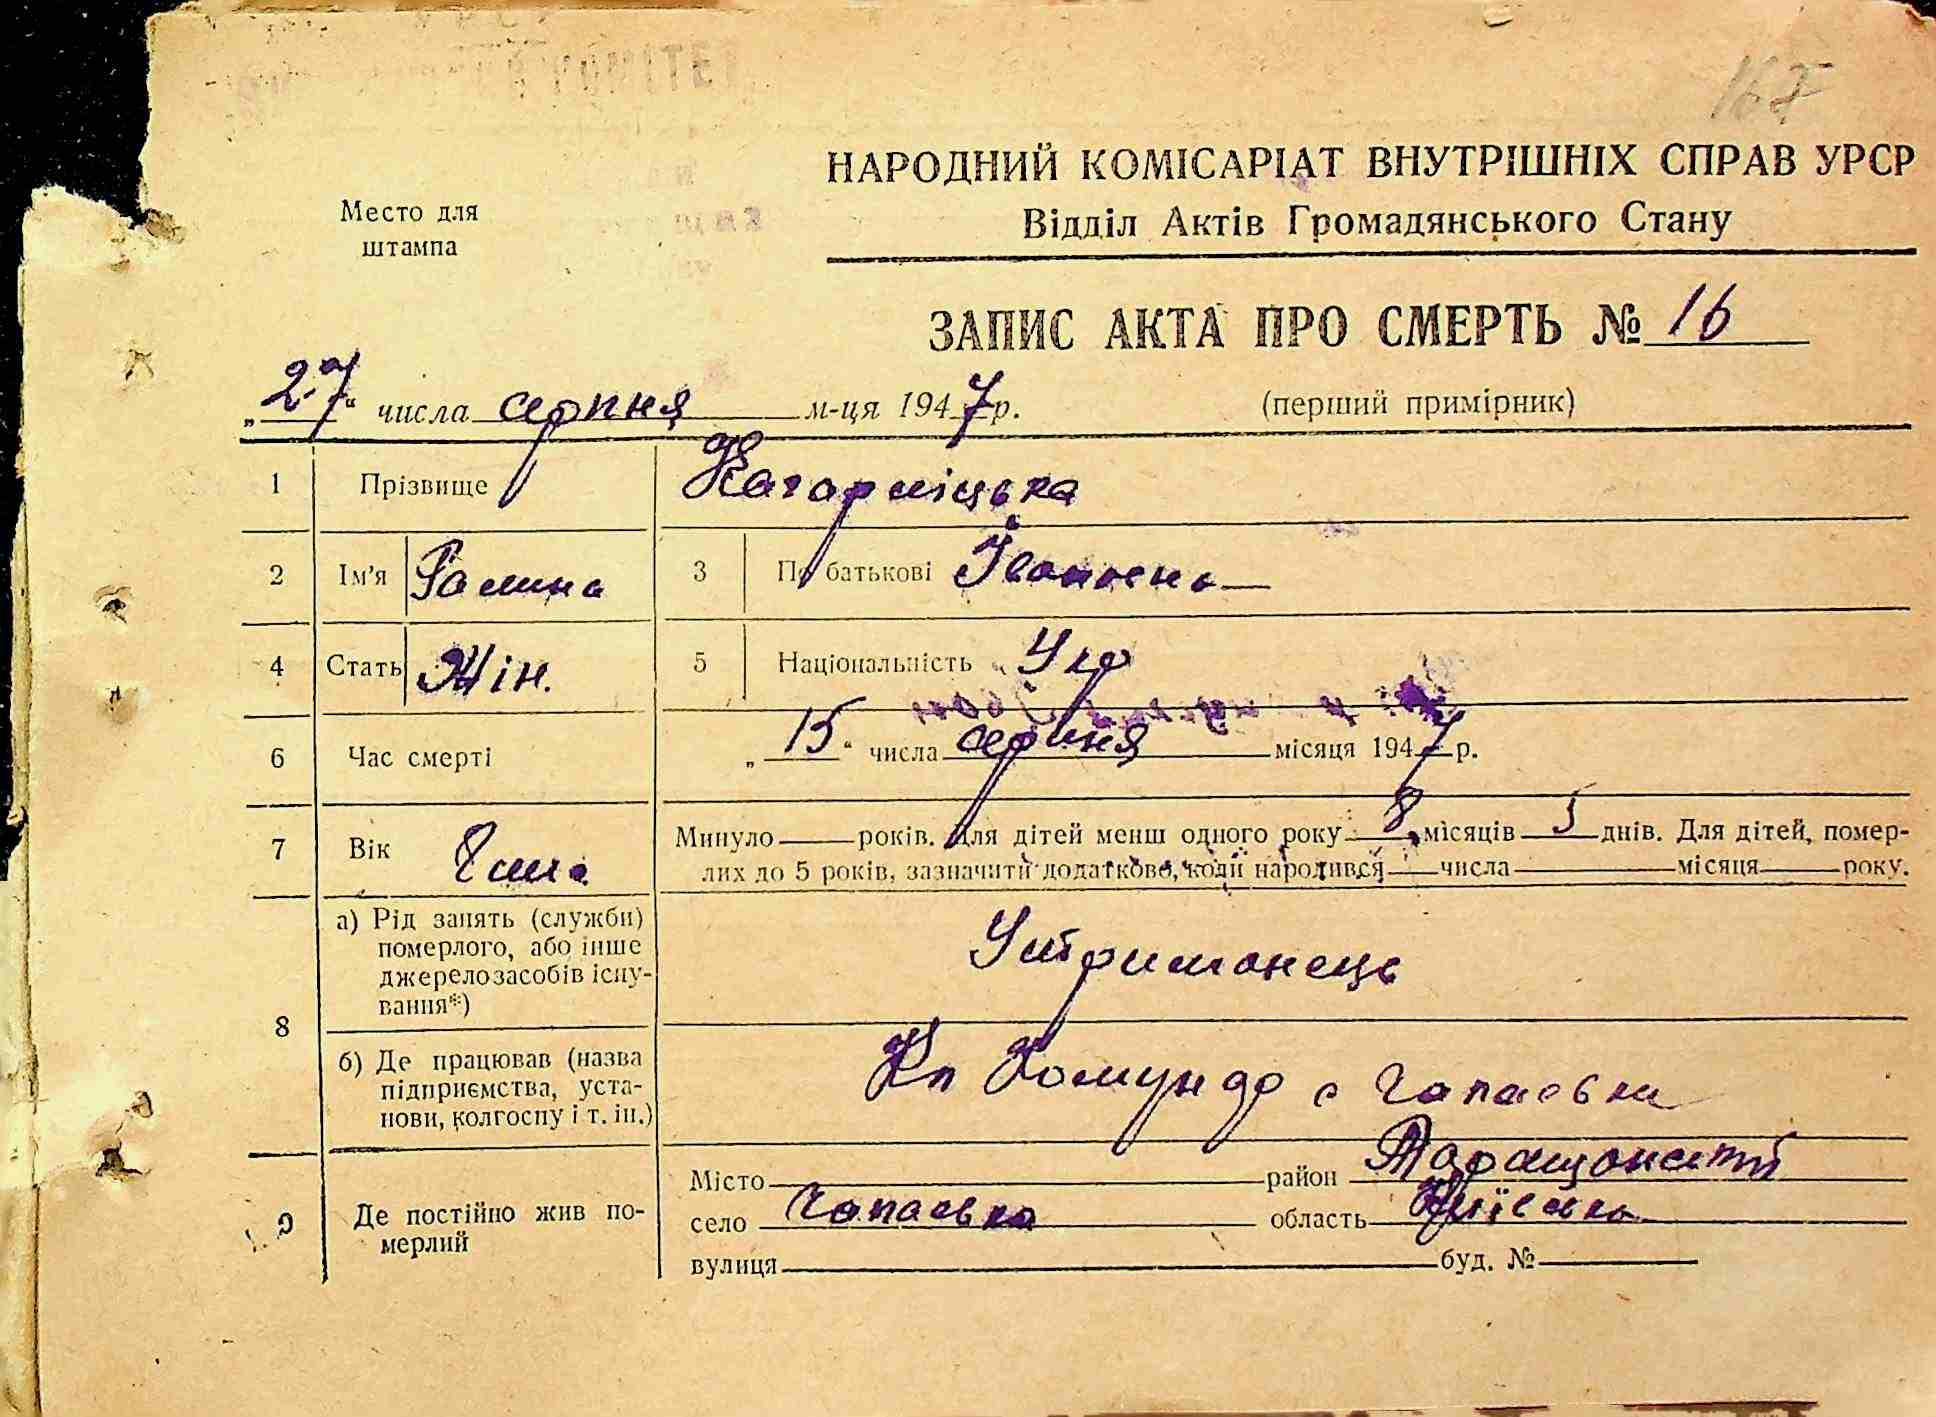 167
НАРОДНИЙ КОМІСАРІАТ ВНУТРІШНІХ СПРАВ УРСР
Відділ Актів Громадянського Стану
Место для
штампа
ЗАПИС АКТА ПРО СМЕРТЬ № 16
„27“ числа серпня м-ця 1947 р.
(перший примірник)
1 Прізвище Кагарліцька
2 Ім'я Галина 3 По батькові Івановна
4 Стать Жін. 5 Національність Укр
6 Час смерті „15“ числа серпня місяця 1947 р.
7 Вік 8 міс. Минуло років. Для дітей менш одного року 8 місяців 5 днів. Для дітей, помер-
лих до 5 років, зазначити додатково, коли народився числа місяця року.
8 а) Рід занять (служби)
померлого, або інше
джерело засобів існу-
вання*)
Утриманець
б) Де працював (назва
підприємства, уста-
нови, колгоспу і т. ін.)
Кп Комунар с Чапаєвки
9 Де постійно жив по-
мерлий
Місто район Таращанський
село Чапаєвка область Київська
вулиця буд. №